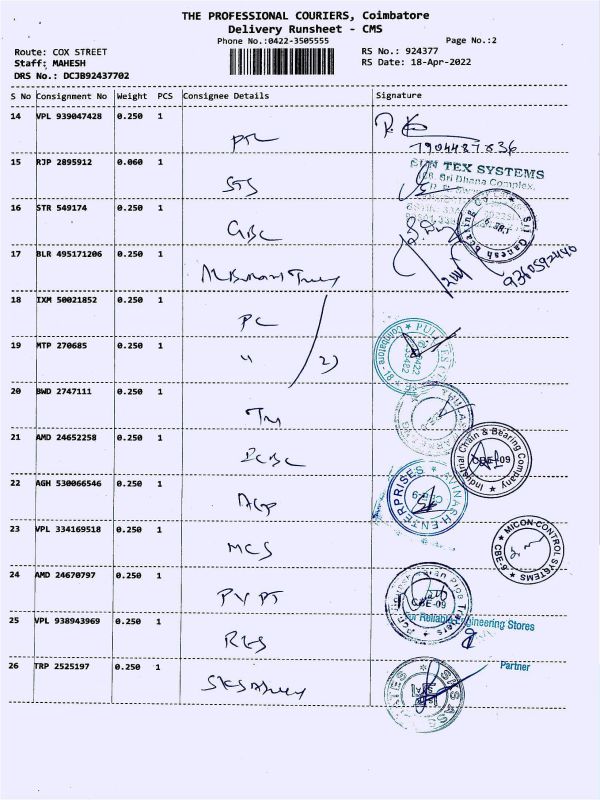 THE PROFESSIONAL COURIERS, Coimbatore
Delivery Runsheet - CMS
Phone No.:0422-3505555
Page No.:2
Route: COX STREET
RS No.: 924377
Staff: MAHESH
RS Date: 18-Apr-2022
DRS No.: DCJB92437702
S No Consignment No Weight PCS Consignee Details Signature
14 VPL 939047428 0.250 1
15 RJP 2895912 0.060 1 STS
SUN TEX SYSTEMS
Sri Dhana Complex,
16 STR 549174 0.250 1 GBC
Sri Ganesh Bearing
17 BLR 495171206 0.250 1
18 IXM 50021852 0.250 1 PC
19 MTP 270685 0.250 1 "
Coimbatore - 18
20 BWD 2747111 0.250 1 TM
21 AMD 24652258 0.250 1 ICBC
Industrial Chain & Bearing Company
CBE-09
22 AGH 530066546 0.250 1
AVINASH ENTERPRISES
23 VPL 334169518 0.250 1 MCS
MICON CONTROL SYSTEMS
CBE-6
24 AMD 24670797 0.250 1 PVPT
CBE-09
25 VPL 938943969 0.250 1 RES
For Reliable Engineering Stores
26 TRP 2525197 0.250 1
Partner